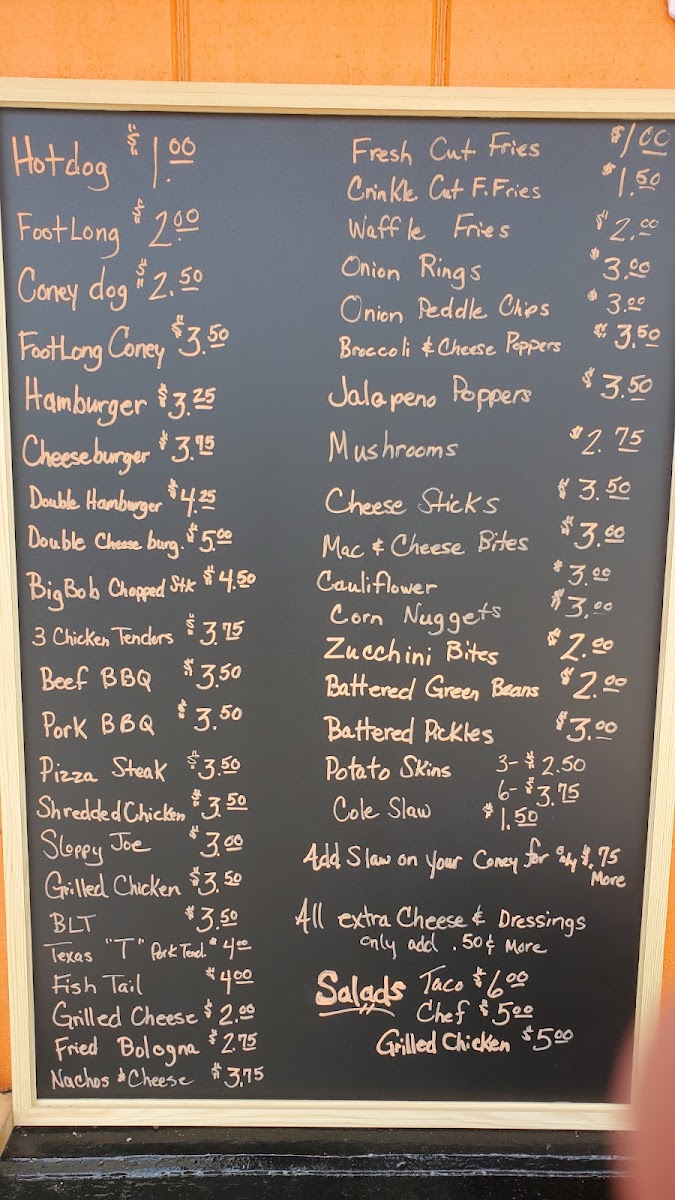 Hotdog $1.00
FootLong $2.00
Coney dog $2.50
FootLong Coney $3.50
Hamburger $3.25
Cheeseburger $3.75
Double Hamburger $4.25
Double Cheese burg. $5.00
Big Bob Chopped Stk $4.50
3 Chicken Tenders $3.75
Beef BBQ $3.50
Pork BBQ $3.50
Pizza Steak $3.50
Shredded Chicken $3.50
Sloppy Joe $3.00
Grilled Chicken $3.50
BLT $3.50
Texas "T" Pork Tend. $4.00
Fish Tail $4.00
Grilled Cheese $2.00
Fried Bologna $2.75
Nachos & Cheese $3.75
Fresh Cut Fries $1.00
Crinkle Cut F. Fries $1.50
Waffle Fries $2.00
Onion Rings $3.00
Onion Peddle Chips $3.00
Broccoli & Cheese Poppers $3.50
Jalapeno Poppers $3.50
Mushrooms $2.75
Cheese Sticks $3.50
Mac & Cheese Bites $3.00
Cauliflower $3.00
Corn Nuggets $3.00
Zucchini Bites $2.00
Battered Green Beans $2.00
Battered Pickles $3.00
Potato Skins 3-$2.50
6-$3.75
Cole Slaw $1.50
Add Slaw on your Coney for only $.75
More
All extra Cheese & Dressings
only add .50¢ More
Salads Taco $6.00
Chef $5.00
Grilled Chicken $5.00